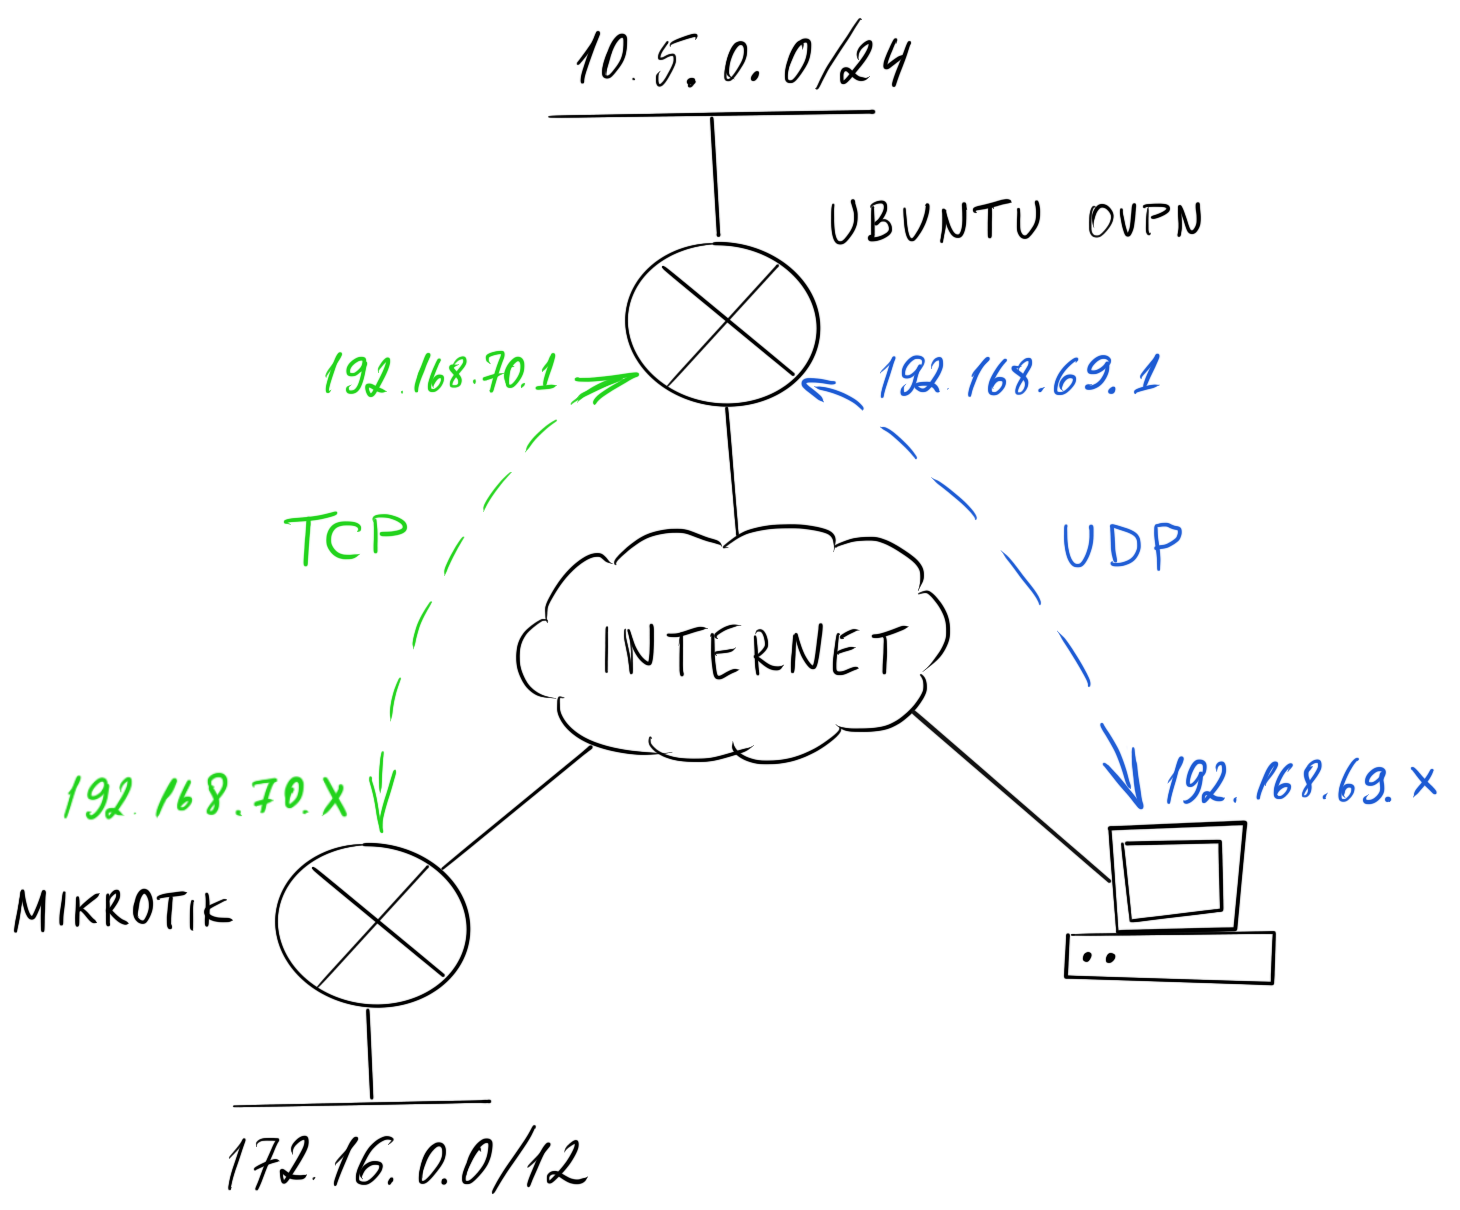 10.5.0.0/24
UBUNTU OVPN
192.168.70.1
192.168.69.1
TCP
UDP
INTERNET
192.168.70.X
192.168.69.X
MIKROTIK
172.16.0.0/12